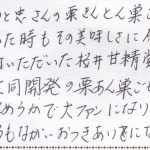 と忠さんの栗きんとん栗こ
た時もその美味しさに
いただいた桜井甘精堂
共同開発の栗あん栗ごも
めうかで大ファンになり
もながいおつきありをにな